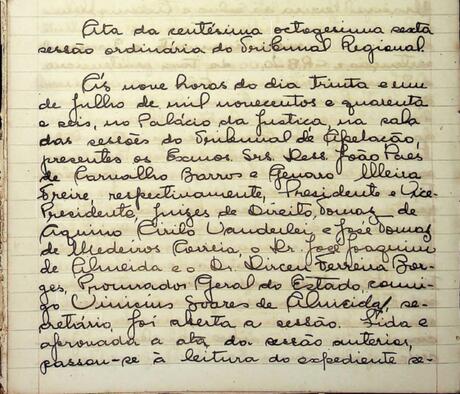 Ata da centésima octogesima sexta
sessão ordinária do Tribunal Regional
Ás nove horas do dia trinta e um
de Julho de mil novecentos e quarenta
e seis, no Palácio da Justiça, na sala
das sessões do Tribunal de Apelação,
presentes os Exmos. Srs. Dess. João Paes
de Carvalho Barros e Genaro Meira
Freire, respectivamente, Presidente e Vice-
Presidente, Juizes de Direito, Tomaz de
Aquino Cirilo Vanderlei, e José Tomaz
de Medeiros Correia, o Dr. José Joaquim
de Almeida e o Dr. Dirceu Ferreira Bor-
ges, Procurador Geral do Estado, comi-
go Vinicius Soares de Almeida, se-
cretário, foi aberta a sessão. Lida e
aprovada a ata da sessão anterior,
passou-se à leitura do expediente se-